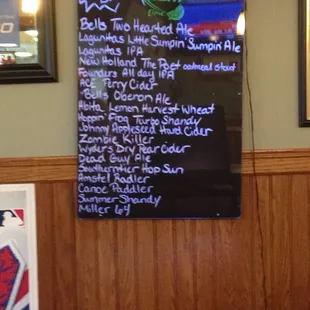 Bells Two Hearted Ale
Lagunitas Little Sumpin Sumpin' Ale
Lagunitas IPA
New Holland The Poet oatmeal stout
Founders All day IPA
ACE Perry Cider
Bells Oberon Ale
Abita Lemon Harvest Wheat
Hoppin' Frog Turbo Shandy
Johnny Appleseed Hard Cider
Zombie Killer
Wyders Dry Pear Cider
Dead Guy Ale
Southerntier Hop Sun
Amstel Radler
Canoe Paddler
Summer Shandy
Miller 64